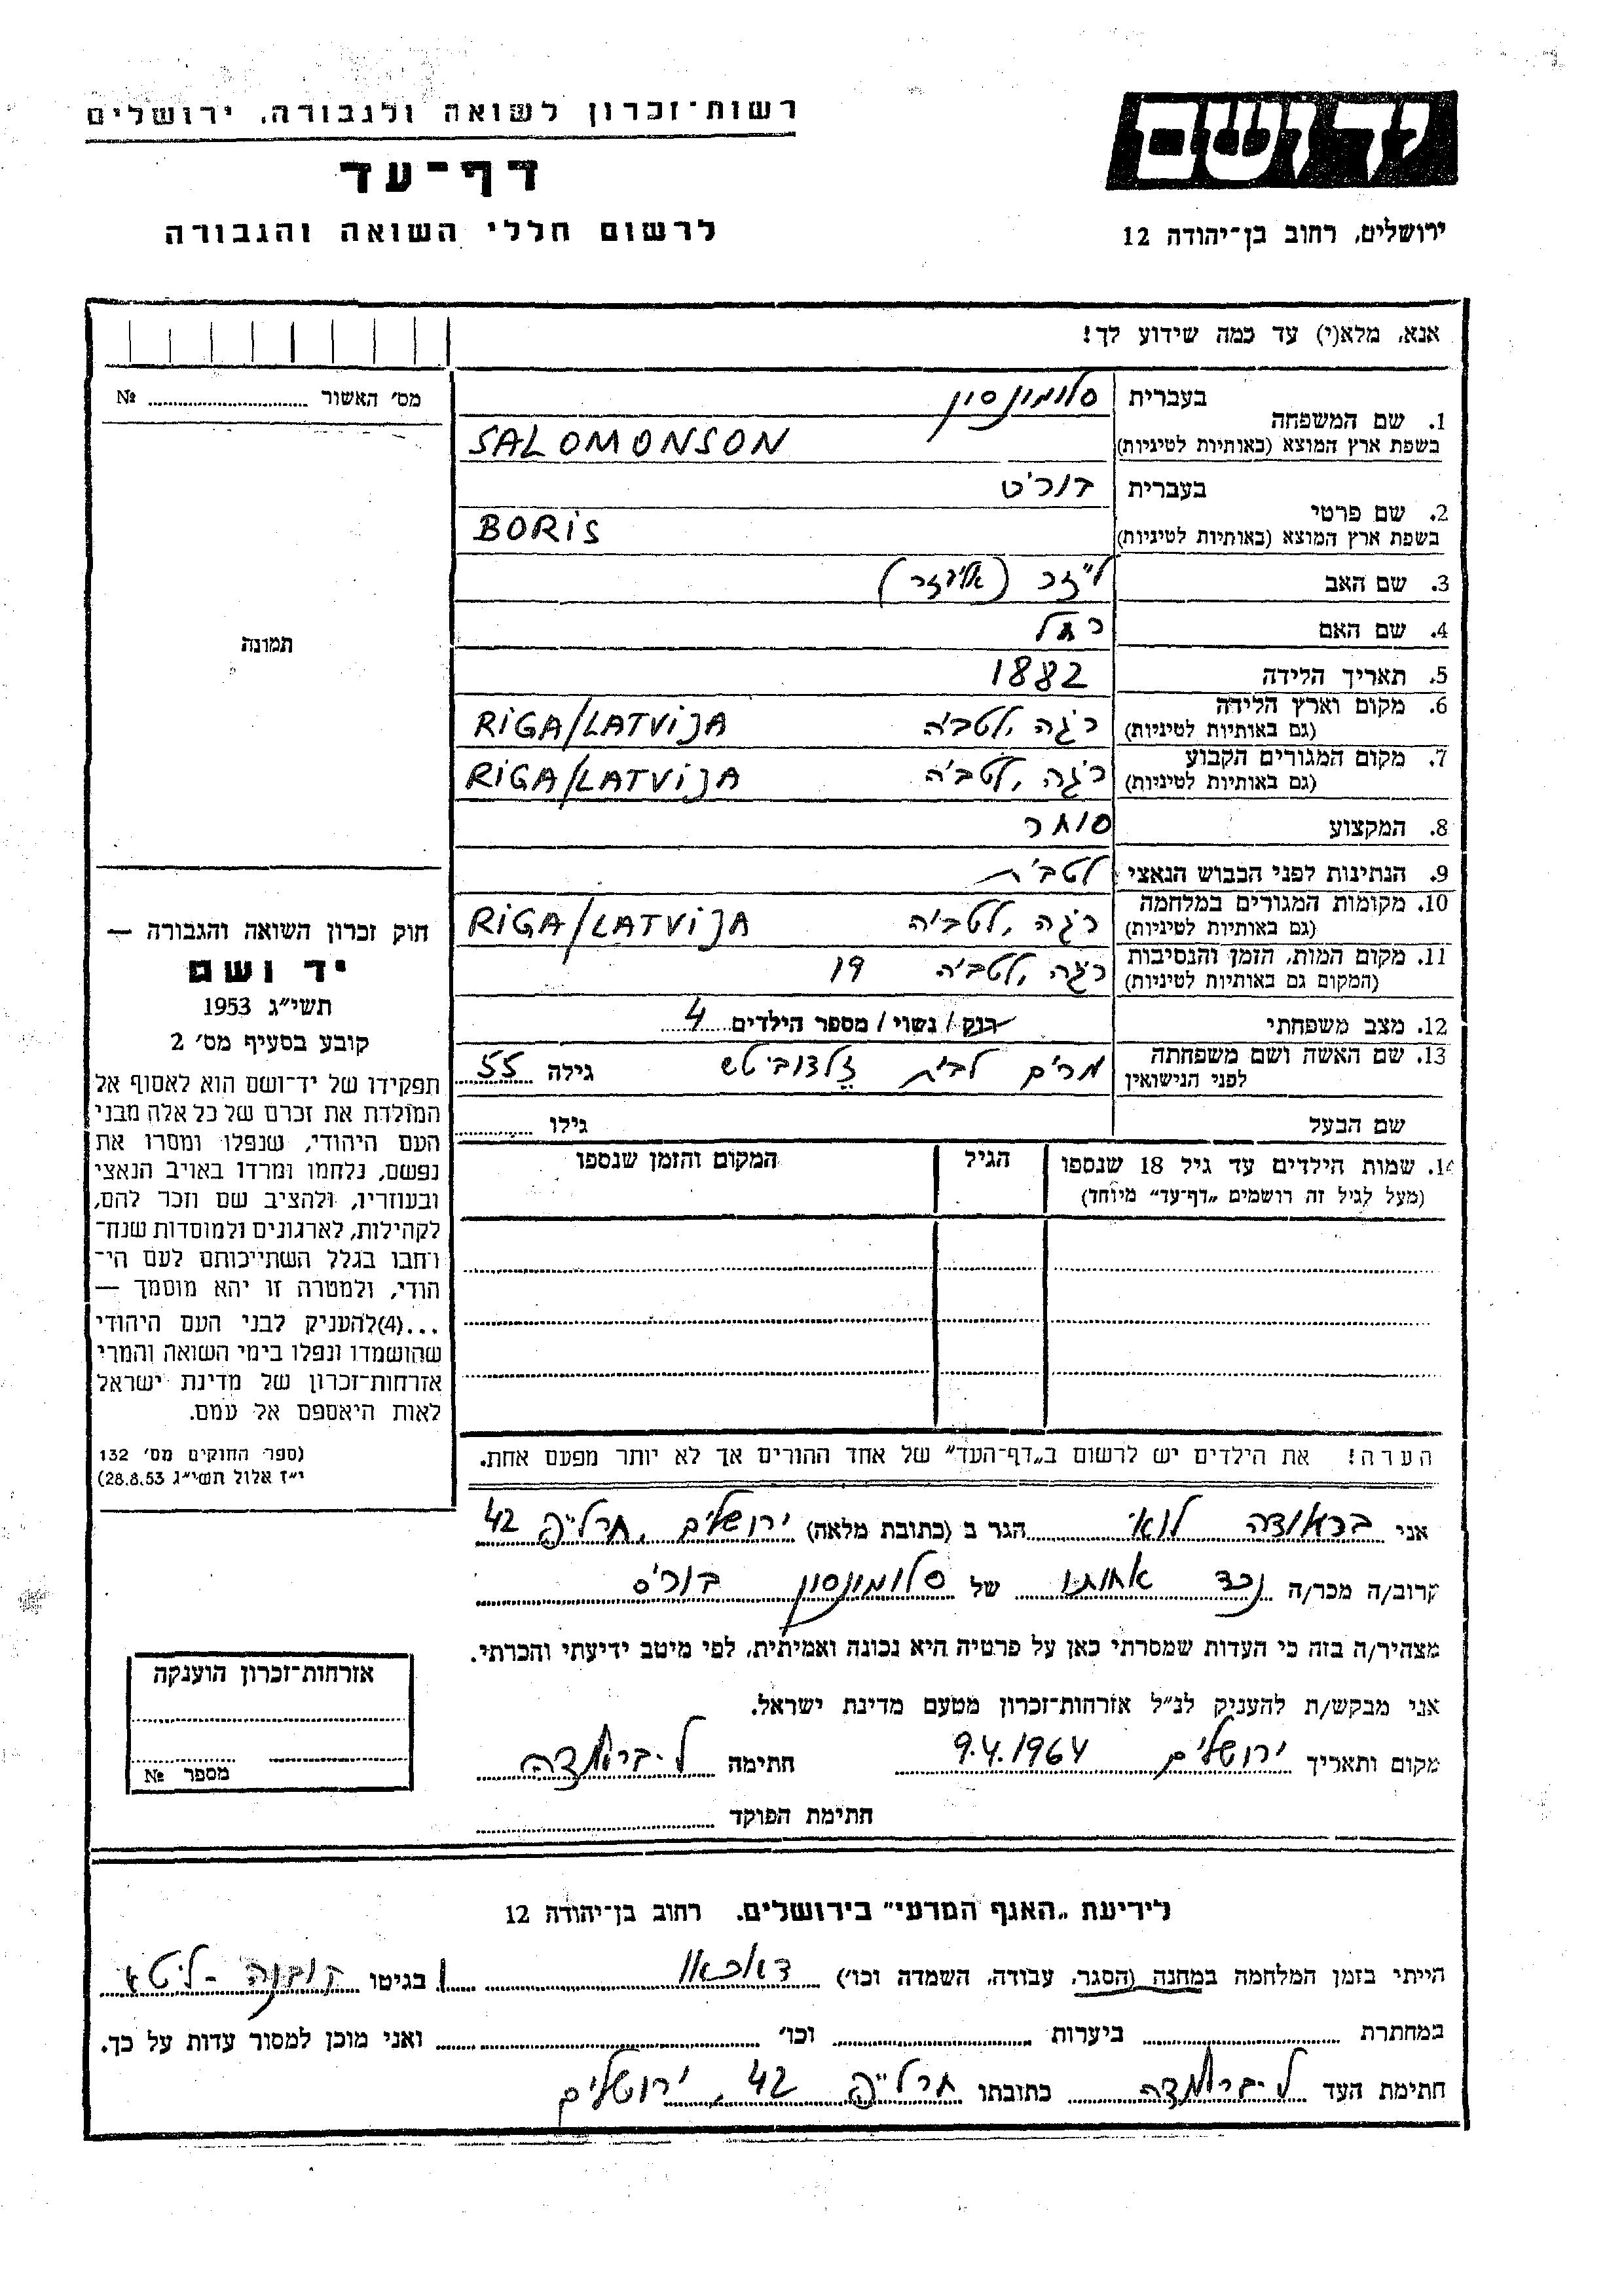 רשות־זכרון לשואה ולגבורה, ירושלים
דף־עד
לרשום חללי השואה והגבורה
יד ושם
ירושלים, רחוב בן־יהודה 12
אנא, מלא(י) עד כמה שידוע לך!
מס׳ האשור № 
תמונה
1. שם המשפחה
בעברית סלומונסון
בשפת ארץ המוצא (באותיות לטיניות) SALOMONSON
2. שם פרטי
בעברית בוריס
בשפת ארץ המוצא (באותיות לטיניות) BORIS
3. שם האב לייזר (אליעזר)
4. שם האם רחל
5. תאריך הלידה 1882
6. מקום וארץ הלידה
(גם באותיות לטיניות) ריגה, לטביה RIGA/LATVIJA
7. מקום המגורים הקבוע
(גם באותיות לטיניות) ריגה, לטביה RIGA/LATVIJA
8. המקצוע סוחר
9. הנתינות לפני הכבוש הנאצי לטבית
10. מקומות המגורים במלחמה
(גם באותיות לטיניות) ריגה, לטביה RIGA/LATVIJA
11. מקום המות, הזמן והנסיבות
(המקום גם באותיות לטיניות) ריגה, לטביה 19
12. מצב משפחתי רווק / נשוי / מספר הילדים 4
13. שם האשה ושם משפחתה
לפני הנישואין מרים לבית גילה 55
שם הבעל גילו
14. שמות הילדים עד גיל 18 שנספו הגיל המקום והזמן שנספו
(מעל לגיל זה רושמים „דף־עד” מיוחד)
הערה! את הילדים יש לרשום ב„דף־העד” של אחד ההורים אך לא יותר מפעם אחת.
חוק זכרון השואה והגבורה —
יד ושם
תשי״ג 1953
קובע בסעיף מס׳ 2
תפקידו של יד־ושם הוא לאסוף אל
המולדת את זכרם של כל אלה מבני
העם היהודי, שנפלו ומסרו את
נפשם, נלחמו ומרדו באויב הנאצי
ובעוזריו, ולהציב שם וזכר להם,
לקהילות, לארגונים ולמוסדות שנח־
רחבו בגלל השתייכותם לעם הי־
הודי, ולמטרה זו יהא מוסמך —
...(4)להעניק לבני העם היהודי
שהושמדו ונפלו בימי השואה והמרי
אזרחות־זכרון של מדינת ישראל
לאות היאספם אל עמם.
(ספר החוקים מס׳ 132
י״ז אלול תשי״ג 28.8.53)
אני בראודה לוי הגר ב (כתובת מלאה) ירושלים, חרל״פ 42
קרוב/ה מכר/ה נכד אחותו של סלומונסון בוריס
מצהיר/ה בזה כי העדות שמסרתי כאן על פרטיה היא נכונה ואמיתית, לפי מיטב ידיעתי והכרתי.
אני מבקש/ת להעניק לנ״ל אזרחות־זכרון מטעם מדינת ישראל.
מקום ותאריך ירושלים 9.4.1964 חתימה ל. בראודה
חתימת הפוקד
אזרחות־זכרון הוענקה
מספר №
לידיעת „האגף המדעי” בירושלים. רחוב בן־יהודה 12
הייתי בזמן המלחמה במחנה (הסגר, עבודה, השמדה וכו׳) דאכאו ו בגיטו קובנה - ליטא
במחתרת ביערות וכו׳ ואני מוכן למסור עדות על כך.
חתימת העד ל. בראודה כתובתו חרל״פ 42, ירושלים